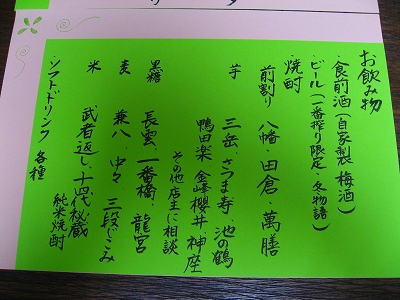 お飲み物
・食前酒（自家製 梅酒）
・ビール（一番搾り限定・冬物語）
・焼酎
前割り 八幡 田倉・萬膳
芋 三岳、さつま寿、池の鶴
鴨田楽 金峰櫻井 神座
その他店主に相談
黒糖 長雲、一番橋・龍宮
麦 兼八、中々 三段じこみ
米 武者返し、十四代秘蔵
純米焼酎
・ソフトドリンク 各種